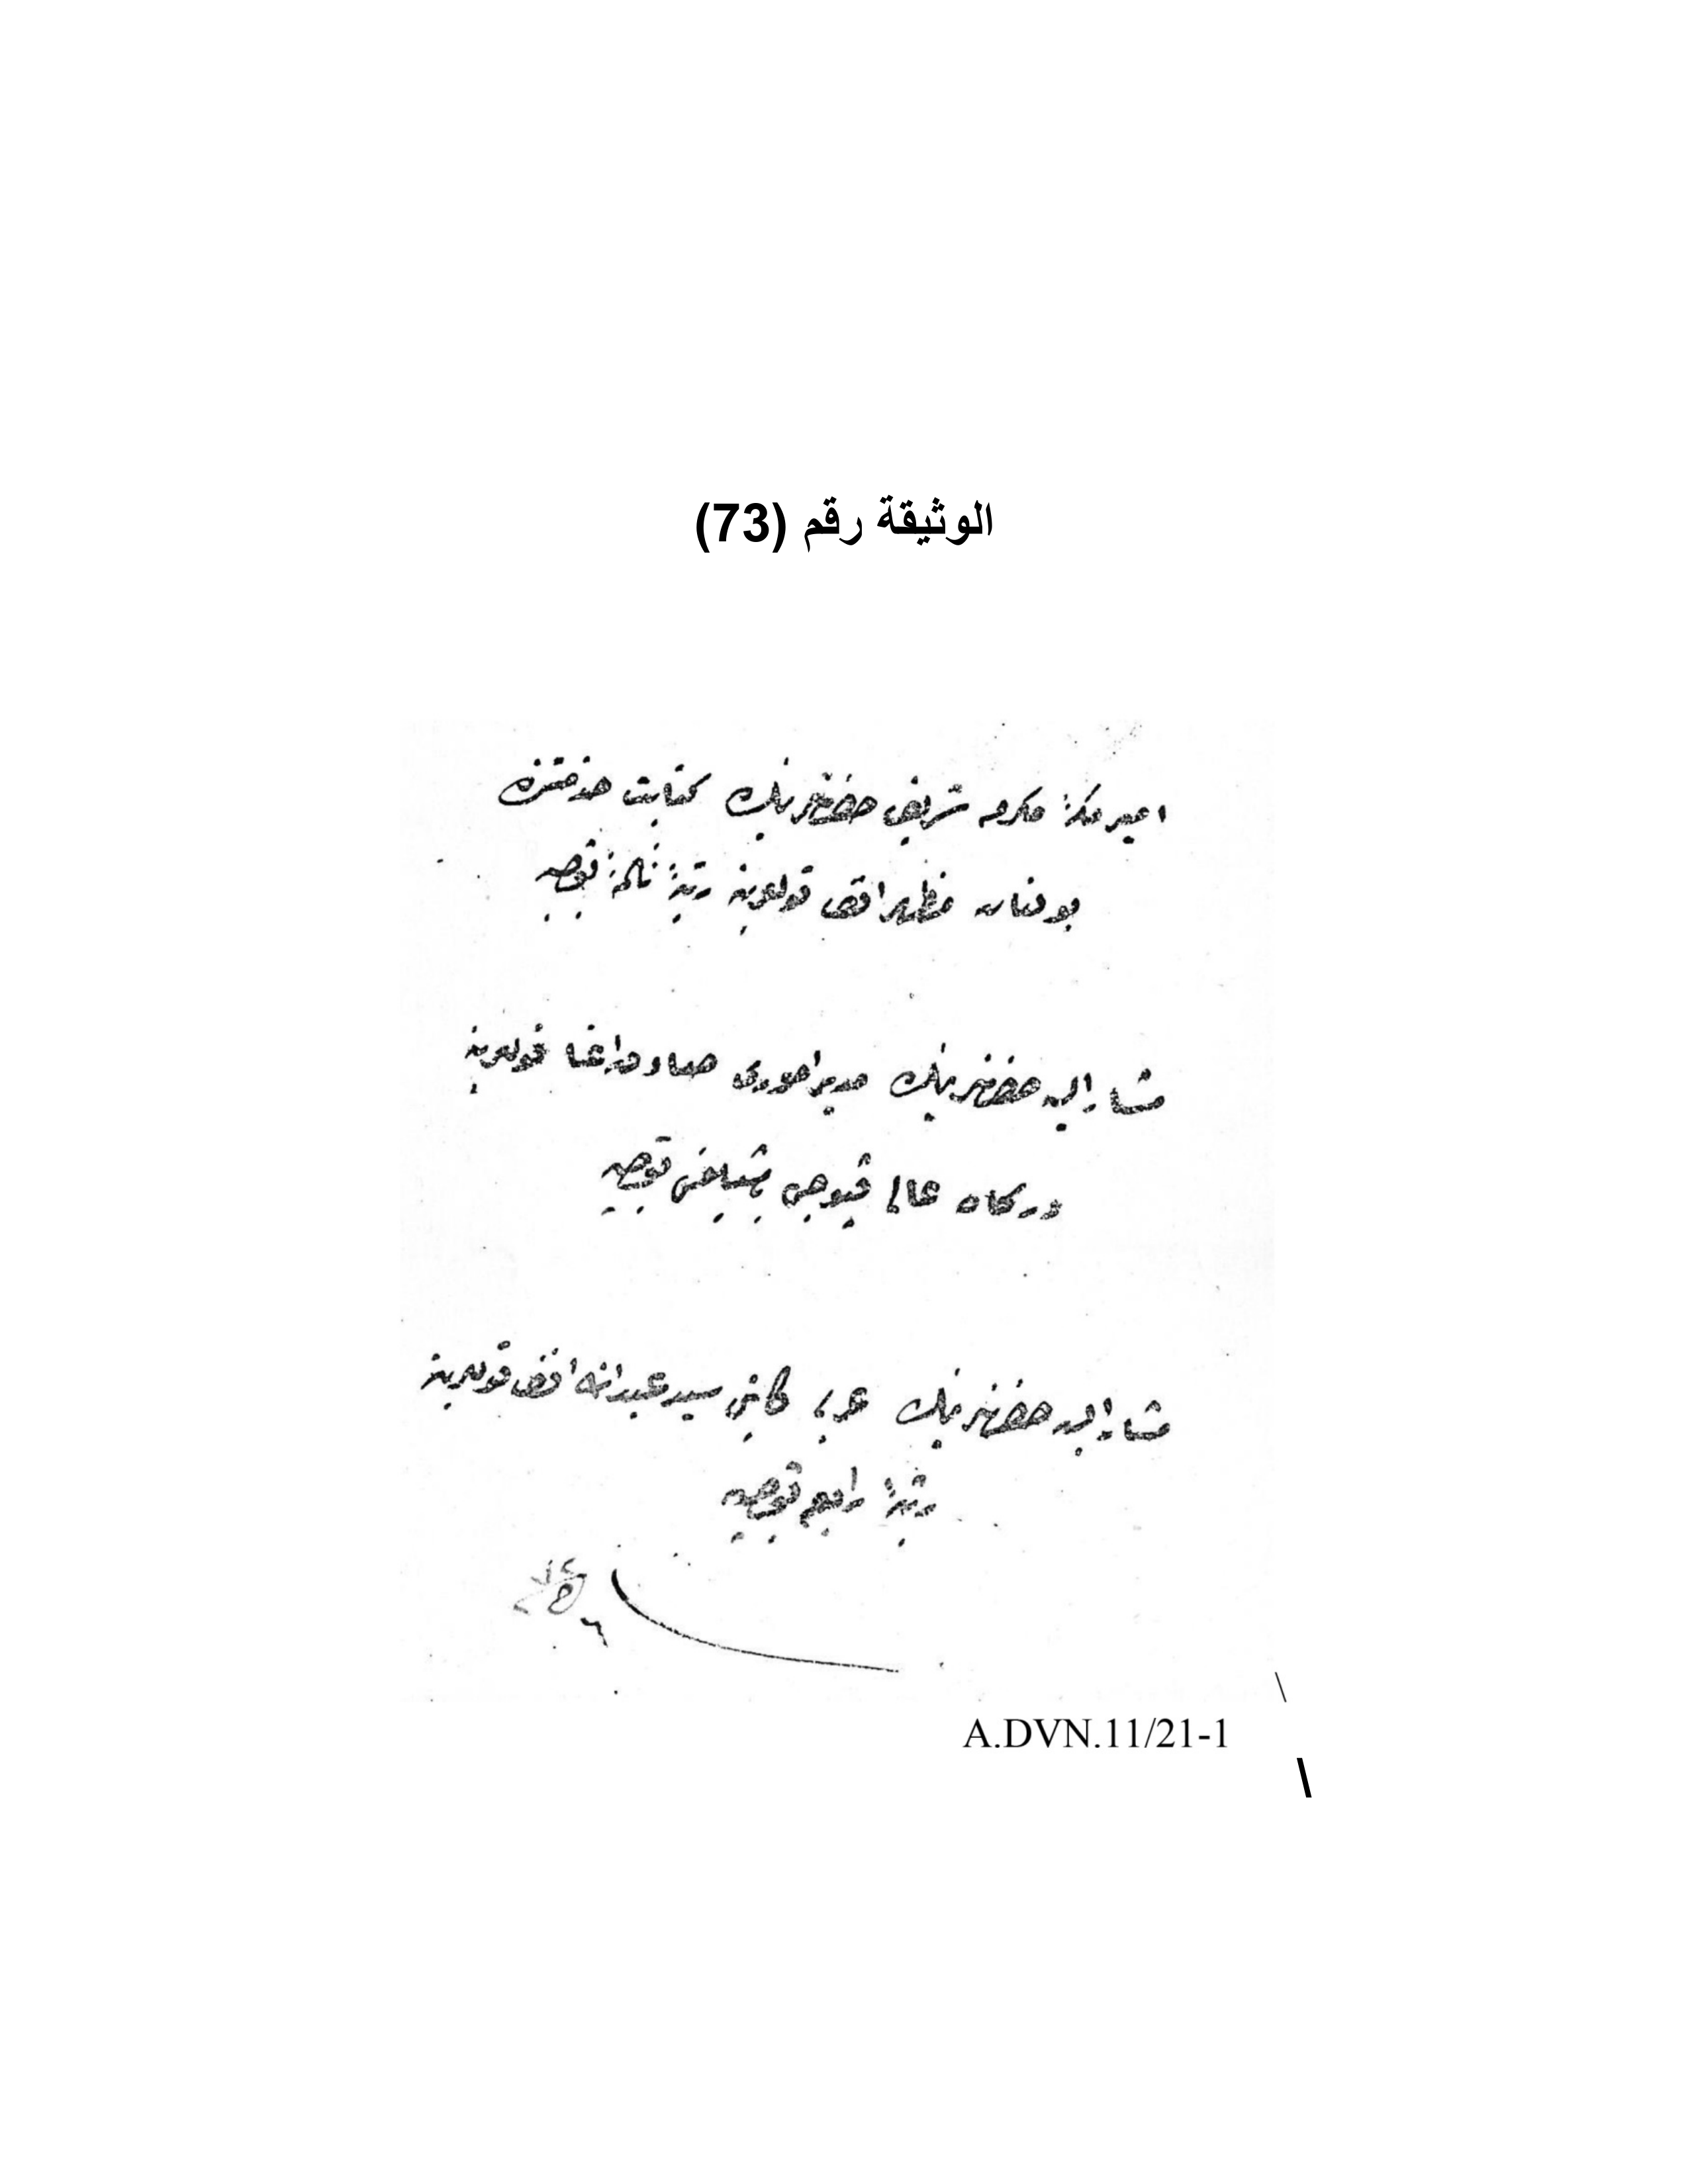 الوثيقة رقم (73)
امير مكهٔ مكرمه شريف حضرتلرينك كتابت خدمتنده
بولنان مظهر افندى قوللرينه رتبهٔ ثالثه توجيهى
مشار اليه حضرتلرينك مدير امورى اغا قوللرينه
دركاه عالى قپوجى باشيلغى توجيهى
مشار اليه حضرتلرينك عربى كاتبى سيد عبدالله افندى قوللرينه
رتبهٔ رابعه توجيهى
A.DVN.11/21-1
\